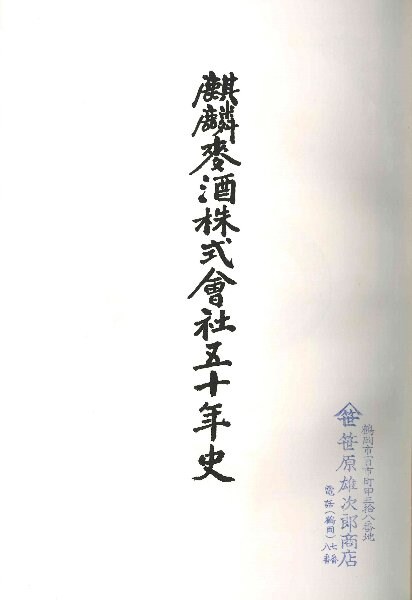 麒麟麥酒株式會社五十年史
鶴岡市一日市町甲三拾八番地
笹 笹原雄次郎商店
電話(鶴岡)七八番番